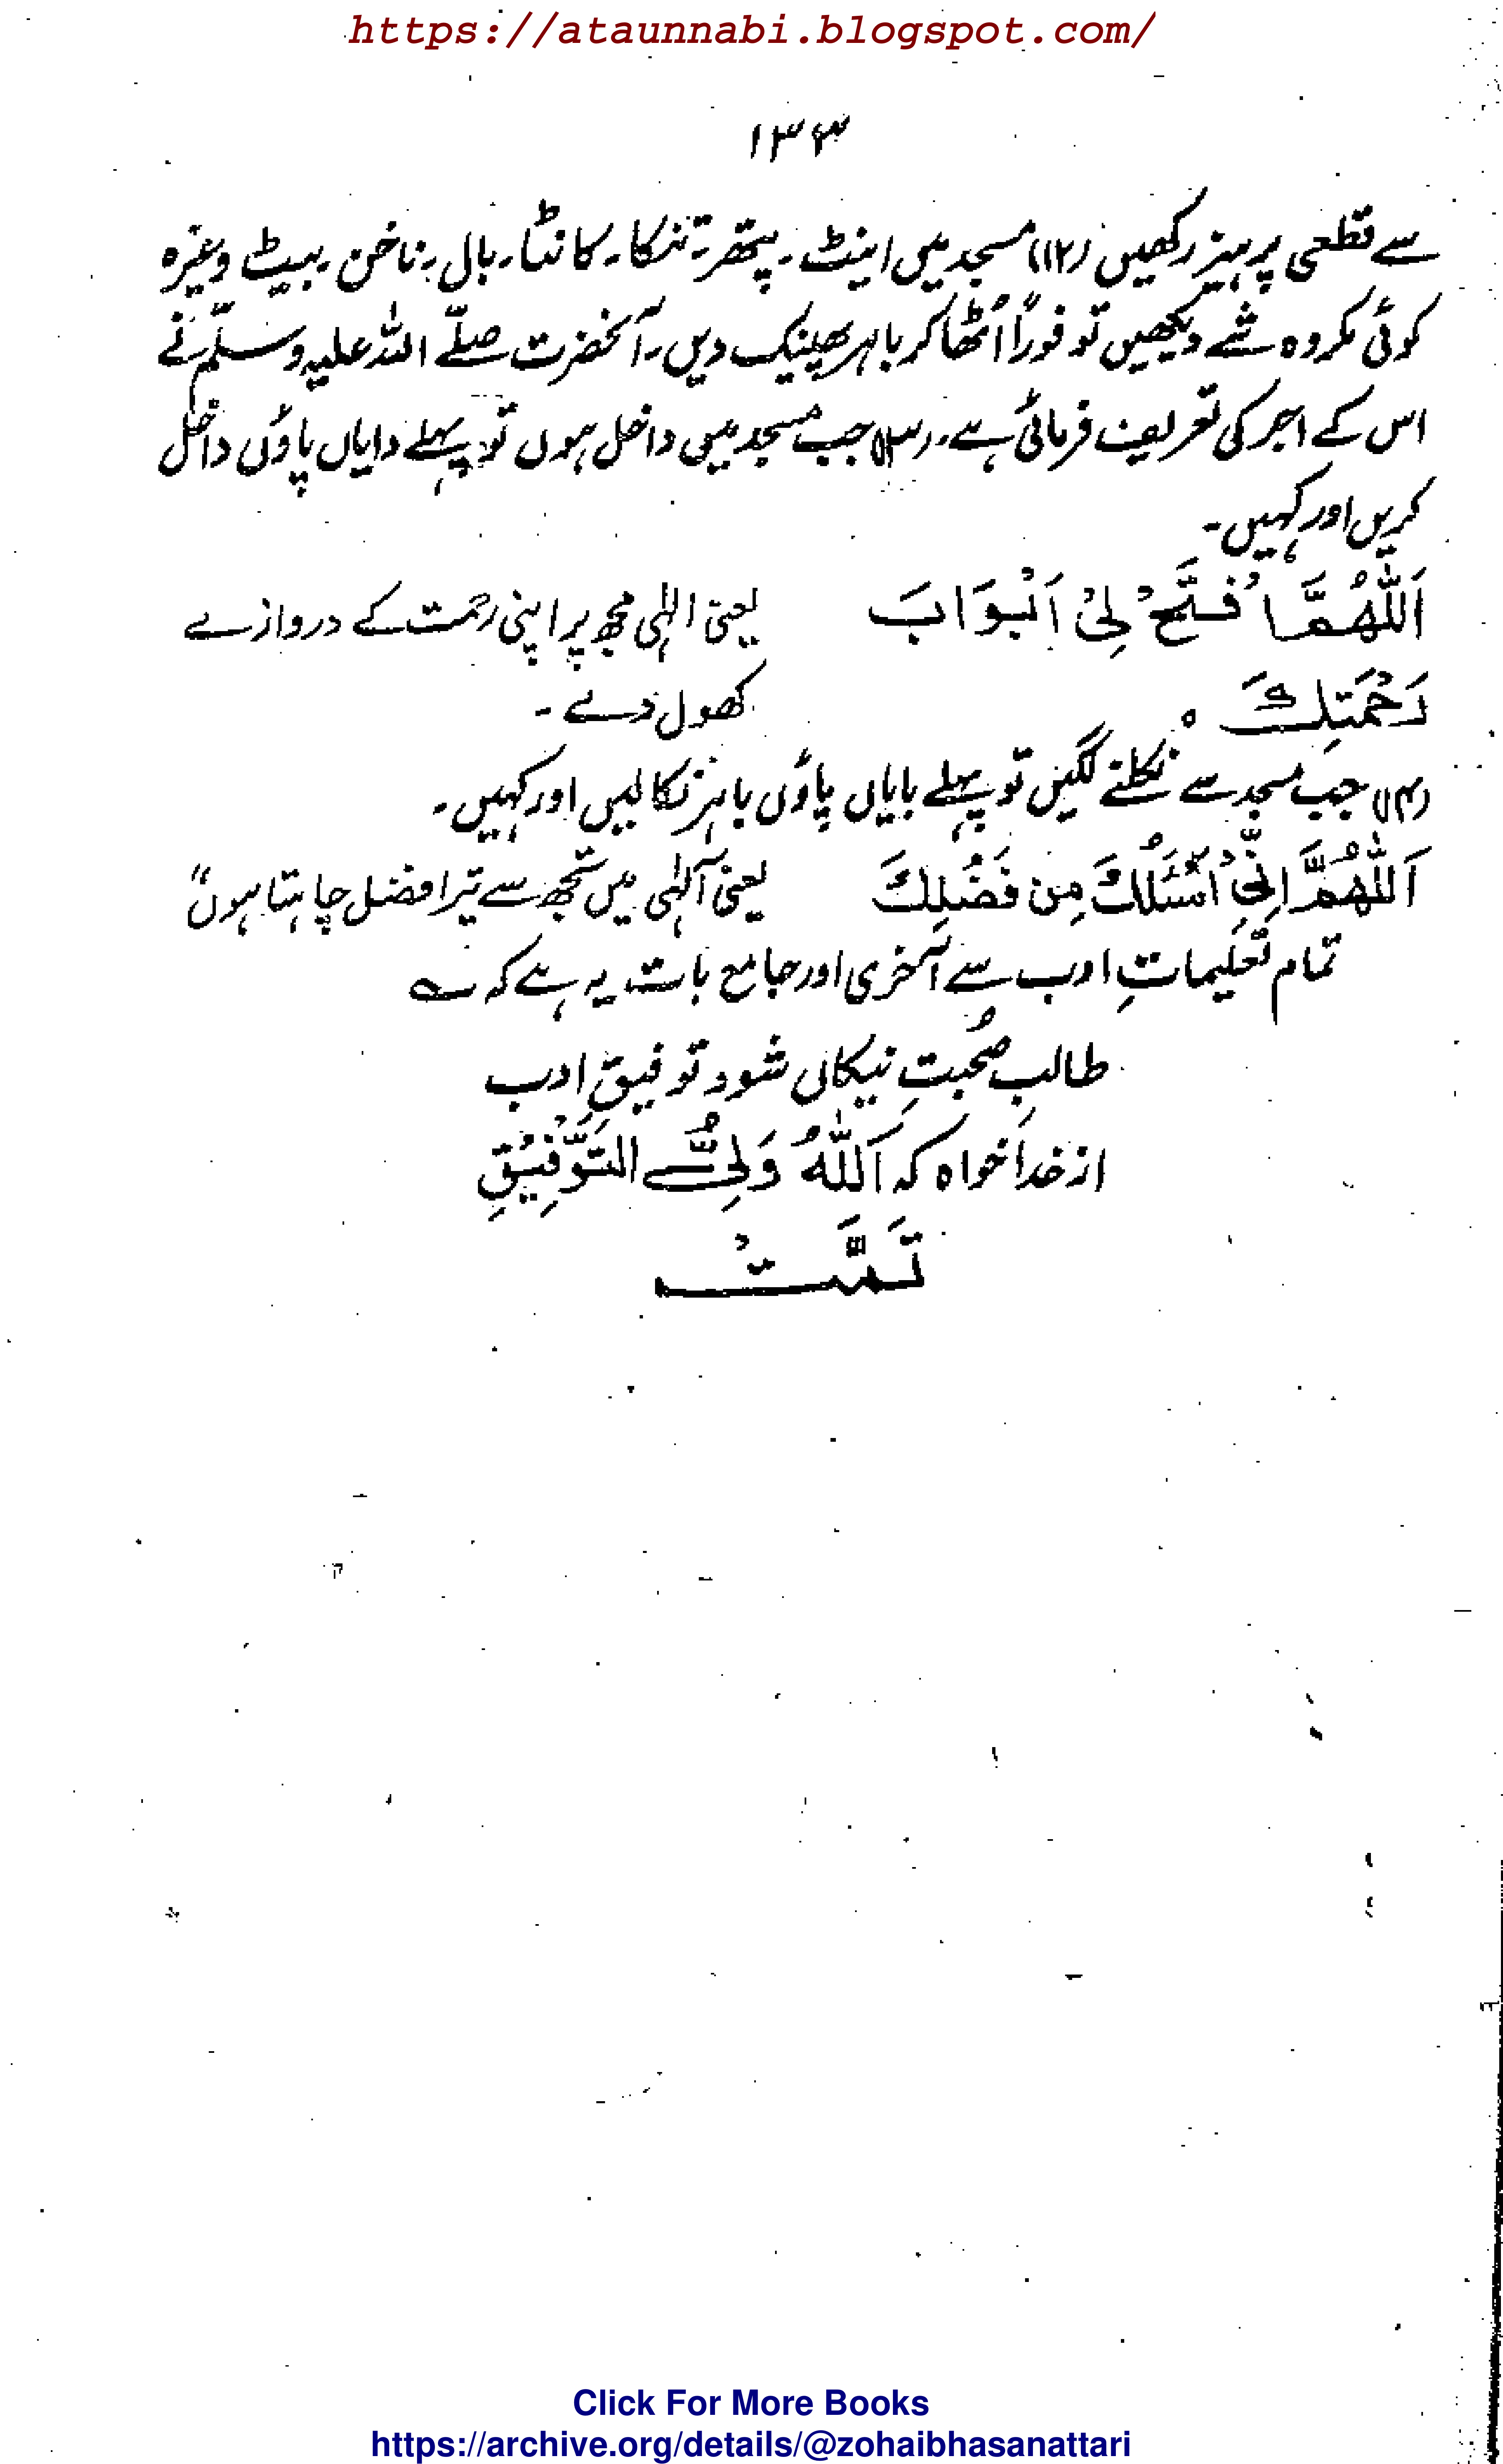 https://ataunnabi.blogspot.com/
۱۳۴
سے قطعی پرہیز رکھیں (۱۲) مسجد میں اینٹ۔ پتھر۔ تنکا۔ کانٹا۔ بال۔ ناخن۔ بیٹ وغیرہ
کوئی مکروہ شے دیکھیں تو فوراً اُٹھا کر باہر پھینک دیں۔ آنحضرت صلّے اللہ علیہ وسلّم نے
اس کے اجر کی تعریف فرمائی ہے۔ (۱۳) جب مسجد میں داخل ہوں تو پہلے دایاں پاؤں داخل
کریں اور کہیں۔
اَللّٰهُمَّ افْتَحْ لِیْ اَبْوَابَ یعنی الٰہی مجھ پر اپنی رحمت کے دروازے
رَحْمَتِكَ ہ کھول دے۔
(۱۴) جب مسجد سے نکلنے لگیں تو پہلے بایاں پاؤں باہر نکالیں اور کہیں۔
اَللّٰهُمَّ اِنِّیْ اَسْئَلُكَ مِنْ فَضْلِكَ یعنی آلٰہی میں تجھ سے تیرا فضل چاہتا ہوں"
تمام تعلیماتِ ادب سے آخری اور جامع بات یہ ہے کہ ؎
طالبِ صُحبتِ نیکاں شود توفیقِ ادب
از خدا خواہ کہ اَللّٰهُ وَلِیُّ التَّوْفِیْقِ
تَمَّتْ
Click For More Books
https://archive.org/details/@zohaibhasanattari